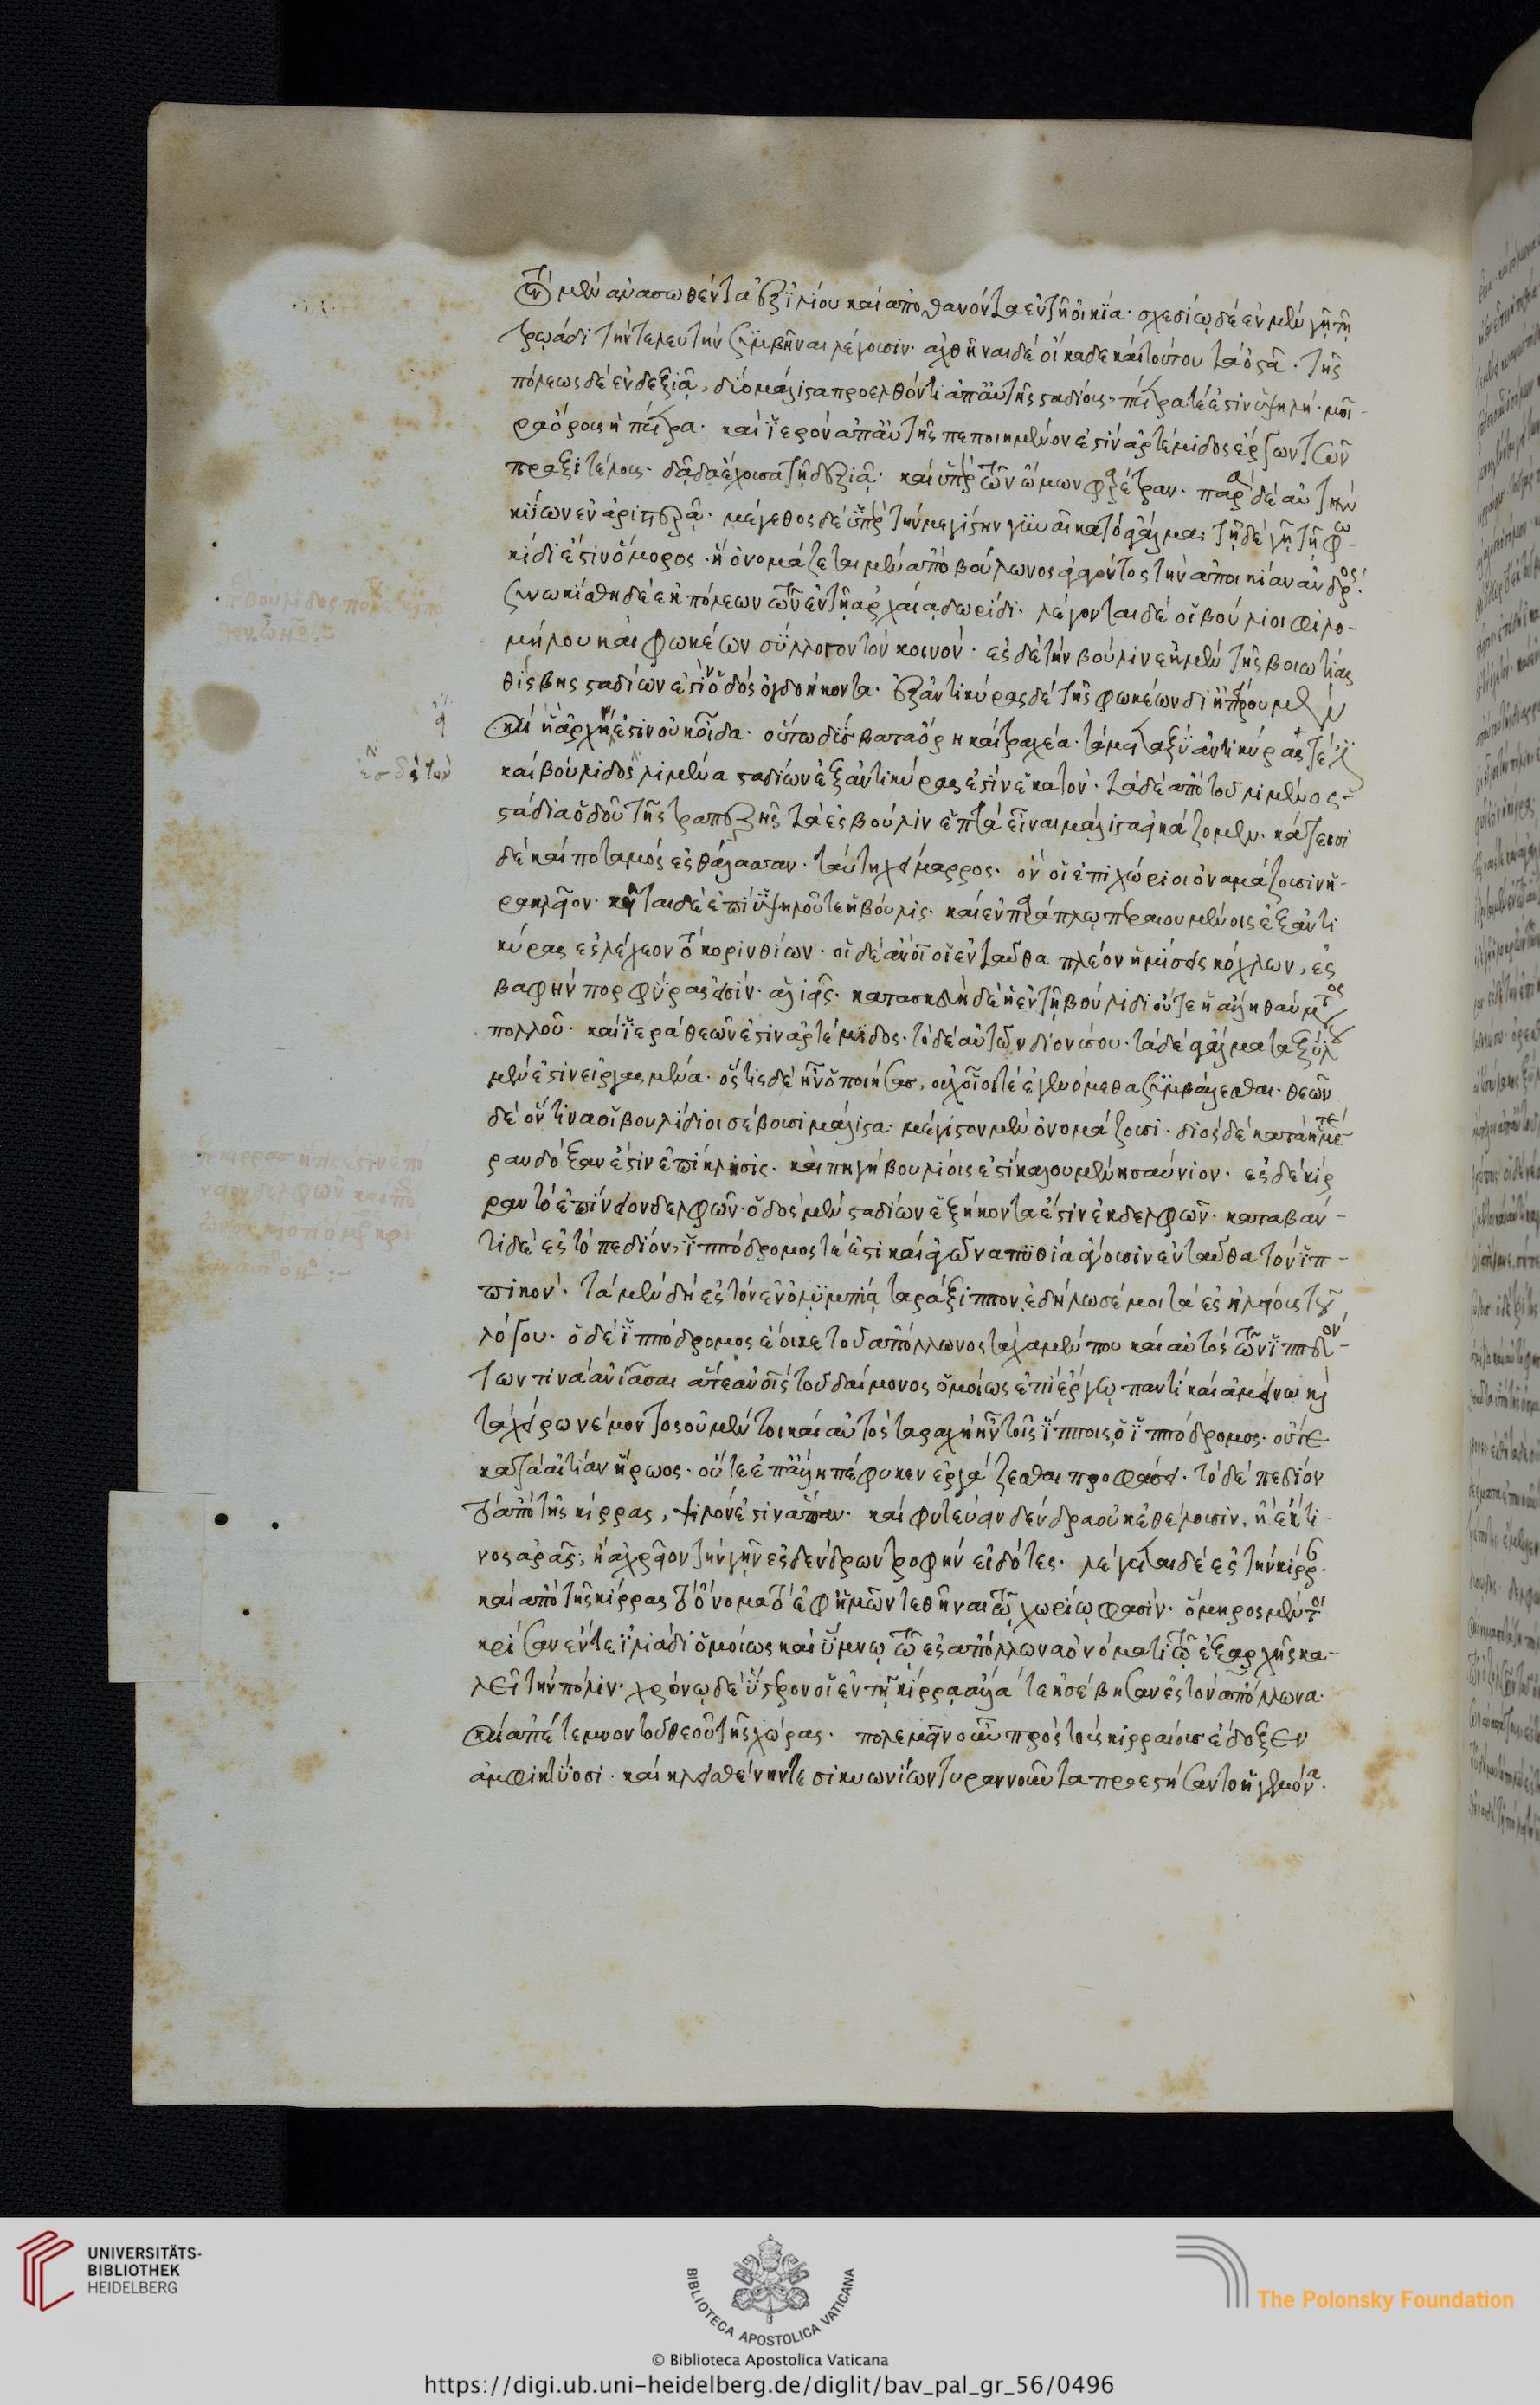 τὸν μὲν ἀνασωθέντα ἐξ ἰλίου καὶ ἀποθανόντα ἐν τῆ οἰκία· σχεδίω δὲ ἐν μὲν γῆ τῆ
τρωάδι τὴν τελευτὴν συμβῆναι λέγουσιν· ἀχθῆναι δὲ οἴκαδε καὶ τούτου τὰ ὀστᾶ· τῆς
πόλεως δὲ ἐν δεξιᾶ, δύο μάλιστα προελθόντι ἀπ' αὐτῆς σταδίους, πέτρα τέ ἐστιν ὑψηλὴ· μοῖ-
ρα ὄρους ἡ πέτρα· καὶ ἱερὸν ἀπ' αὐτῆς πεποιημένον ἐστὶν ἀρτέμιδος ἔργων τῶν
πραξιτέλους· δᾶδα ἔχουσα τῆ δεξιᾶ· καὶ ὑπὲρ τῶν ὤμων φαρέτραν· παρὰ δὲ αὐτὴν
κύων ἐν ἀριστερᾶ· μέγεθος δὲ ὑπὲρ τὴν μεγίστην γυναῖκα τὸ ἄγαλμα· τῆ δὲ γῆ τῆ φω-
κίδι ἐστὶν ὅμορος· ἣ ὀνομάζεται μὲν ἀπὸ βούλωνος ἀγαγόντος τὴν ἀποικίαν ἀνδρός·
συνωκίσθη δὲ ἐκ πόλεων τῶν ἐν τῆ ἀρχαία δωρίδι· λέγονται δὲ οἱ βούλιοι φιλο-
μήλου καὶ φωκέων σύλλογον τὸν κοινόν· ἐς δὲ τὴν βοῦλιν ἐκ μὲν τῆς βοιωτίας
θίσβης σταδίων ἐστὶν ὁδὸς ὀγδοήκοντα· ἐξ ἀντικύρας δὲ τῆς φωκέων δι' ἠπείρου μὲν
καὶ ἡ ἀρχὴν ἐστιν οὐκ οἶδα· οὕτω δύσβατα ὄρη καὶ τραχέα· τὰ μεταξὺ ἀντικύρας τέ ἐστι
καὶ βούλιδος λιμένα σταδίων ἐξ ἀντικύρας ἐστὶν ἑκατόν· τὰ δὲ ἀπὸ τοῦ λιμένος
στάδια ὁδοῦ τῆς τραπεζῆς τὰ ἐς βοῦλιν ἑπτὰ εἶναι μάλιστα εἰκάζομεν· κάτεισι
δὲ καὶ ποταμὸς ἐς θάλασσαν· ταύτη χείμαρρος· ὃν οἱ ἐπιχώριοι ὀνομάζουσιν ἡ-
ράκλειον· κεῖται δὲ ἐπὶ ὑψηλοῦ τε ἡ βοῦλις· καὶ ἐν παράπλω περαιουμένοις ἐξ ἀντι
κύρας ἐς λέχεον τὸ κορινθίων· οἱ δὲ ἄνοι οἱ ἐνταῦθα πλέον ἡμίσεις κόχλων, ἐς
βαφὴν πορφύρας εἰσὶν ἁλιεῖς· κατασκευὴ δὲ ἡ ἐν τῆ βούλιδι οὔτε ἡ ἄλλη θαύματος
πολλοῦ· καὶ ἱερὰ θεῶν ἐστιν ἀρτέμιδος· τὸ δὲ αὐτῶν διονύσου· τὰ δὲ ἀγάλματα ξύλου
μέν ἐστιν εἰργασμένα· ὅστις δὲ ἦν ὁ ποιήσας, οὐχ οἷοί τε ἐγενόμεθα συμβαλέσθαι· θεῶν
δὲ ὅντινα οἱ βουλίδιοι σέβουσι μάλιστα· μέγιστον μὲν ὀνομάζουσι· διὸς δὲ κατὰ ἡμετέ-
ραν δόξαν ἐστὶν ἐπίκλησις· καὶ πηγὴ βουλίοις ἐστὶ καλουμένη σαύνιον· ἐς δὲ κίρ
ραν τὸ ἐπίνειον δελφῶν· ὁδὸς μὲν σταδίων ἑξήκοντα ἐστὶν ἐκ δελφῶν· καταβάν-
τι δὲ ἐς τὸ πεδίον, ἱππόδρομός τέ ἐστι καὶ ἀγῶνα πύθια ἄγουσιν ἐνταῦθα τὸν ἱπ-
πικόν· τὰ μὲν δὴ ἐς τὸν ἐν ὀλυμπία ταράξιππον, ἐδήλωσέ μοι τὰ ἐς ἠλείους τοῦ
λόγου· ὁ δὲ ἱππόδρομος ἔοικε τοῦ ἀπόλλωνος τάχα μέν που καὶ αὐτὸς τῶν ἱππευόν-
των τινὰ ἀνιᾶσαι ἅτε ἀνοις τοῦ δαίμονος ὁμοίως ἐπὶ ἔργω παντὶ καὶ ἀμείνω καὶ
τὰ χείρω νέμοντος οὐ μέντοι καὶ αὐτὸς ταραχὴν τοῖς ἵπποις, ὁ ἱππόδρομος· οὔτε
κατὰ αἰτίαν ἥρωος· οὔτε ἐπ' ἄλλη πέφυκεν ἐργάζεσθαι προφάσει· τὸ δὲ πεδίον
τὸ ἀπὸ τῆς κίρρας, ψιλόν ἐστιν ἅπαν· καὶ φυτεύειν δένδρα οὐκ ἐθέλουσιν, ἢ ἔκ τι-
νος ἀρᾶς, ἢ ἀχρεῖον τὴν γῆν ἐς δένδρων τροφὴν εἰδότες· λέγεται δὲ ἐς τὴν κίρραν·
καὶ ἀπὸ τῆς κίρρας τὸ ὄνομα τὸ ἐφ' ἡμῶν τεθῆναι τῶ χωρίω φασίν· ὅμηρος μέντοι
κρίσαν ἔν τε ἰλιάδι ὁμοίως καὶ ὕμνω τῶ ἐς ἀπόλλωνα ὀνόματι τῶ ἐξ ἀρχῆς κα-
λεῖ τὴν πόλιν· χρόνω δὲ ὕστερον οἱ ἐν τῆ κίρρα ἄλλα τε ἠσέβησαν ἐς τὸν ἀπόλλωνα·
καὶ ἀπέτεμνον τοῦ θεοῦ τῆς χώρας· πολεμεῖν οὖν πρὸς τοὺς κιρραίους ἔδοξεν
ἀμφικτύοσι· καὶ κλεισθένην τε σικυωνίων τυραννοῦντα προεστήσαντο ἡγεμόνα·
UNIVERSITÄTS-
BIBLIOTHEK
HEIDELBERG
BIBLIOTECA APOSTOLICA VATICANA
The Polonsky Foundation
© Biblioteca Apostolica Vaticana
https://digi.ub.uni-heidelberg.de/diglit/bav_pal_gr_56/0496